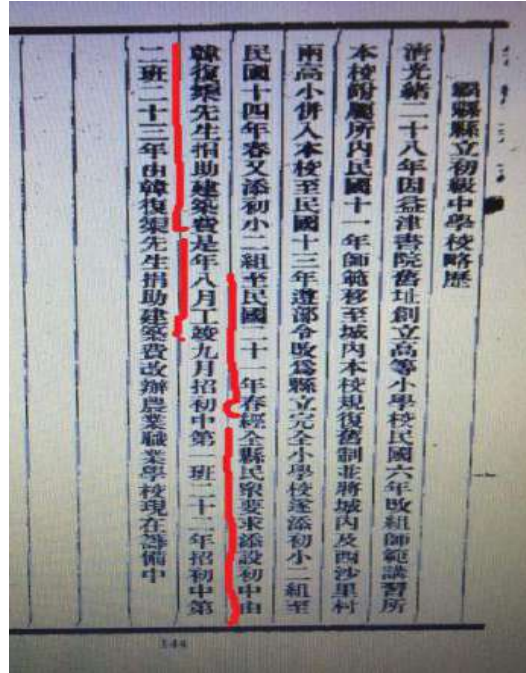 霸縣縣立初級中學校略歷
清光緒二十八年因益津書院舊址創立高等小學校民國六年改組師範講習所
本校附屬所內民國十一年師範移至城內本校規復舊制並將城內及西沙里村
兩高小併入本校至民國十三年遵部令改爲縣立完全小學校遂添初小二組至
民國十四年春又添初小二組至民國二十一年春經全縣民衆要求添設初中由
韓復榘先生捐助建築費是年八月工竣九月招初中第一班二十二年招初中第
二班二十三年由韓復榘先生捐助建築費改辦農業職業學校現在籌備中
144